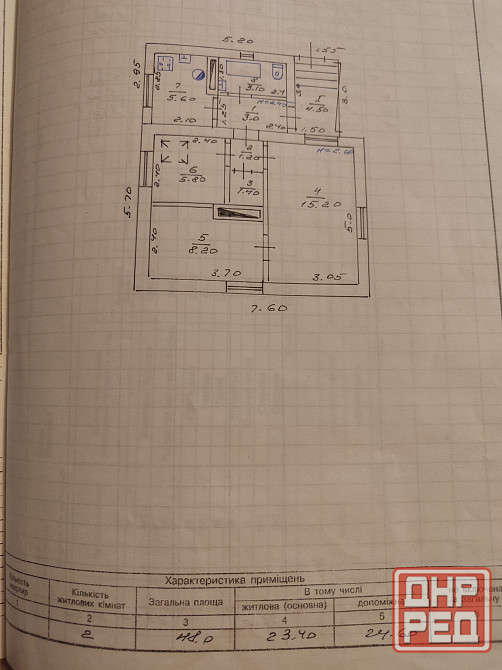 5.20
1.55
2.95
2.25
7
5.60
2.10
1.25
8
3.10
2.4
1
3.0
2.40
I
4.50
3.0
1.50
2.40
2
1.20
3
1.40
6
5.80
2.40
4
15.20
5.0
5.70
2.40
5
8.20
3.70
3.05
7.60
Характеристика приміщень
Кількість квартир
Кількість житлових кімнат
Загальна площа
В тому числі
житлова (основна)
допоміжна
не включена в загальну
1
2
3
4
5
2
48,0
23.40
24.60
ДНР
РЕД